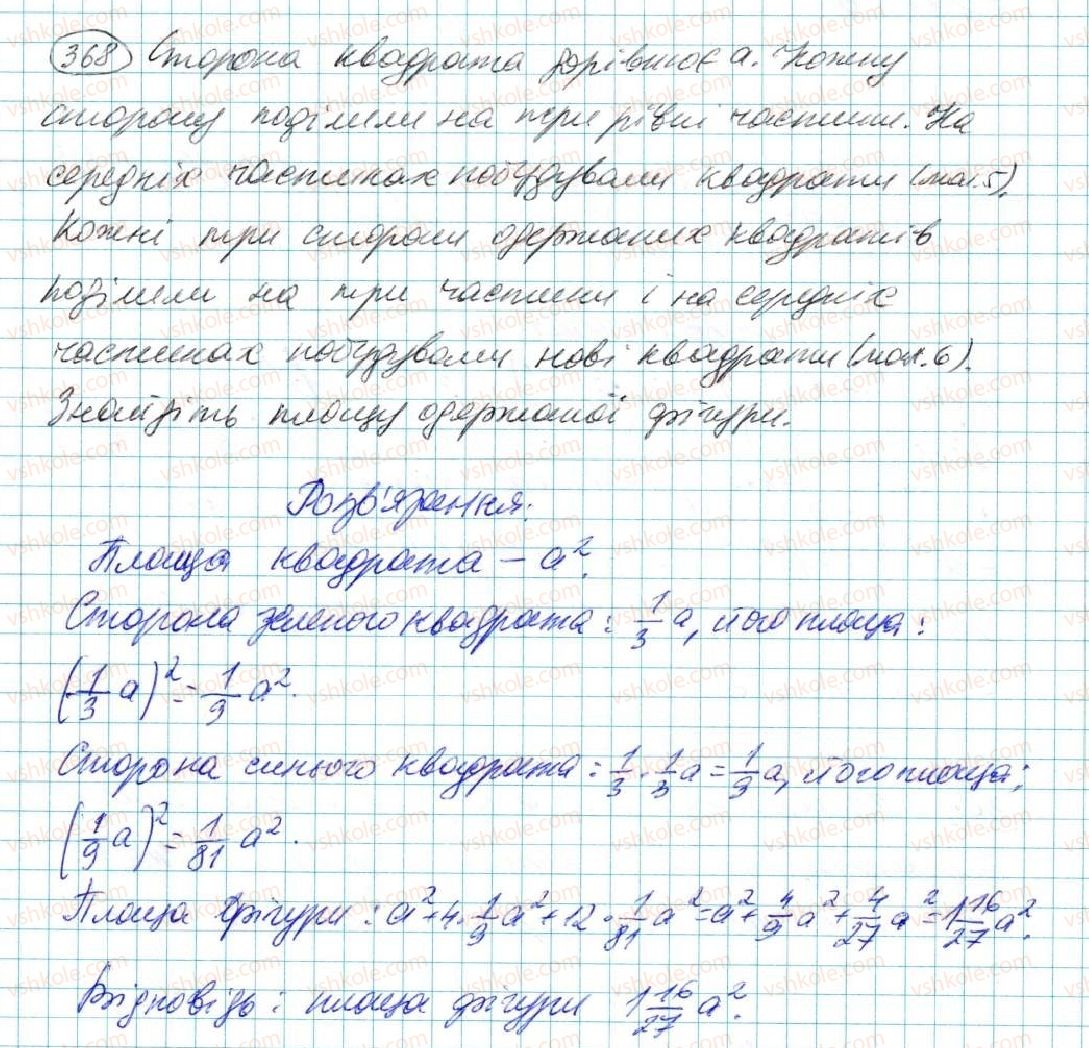 368 Сторона квадрата дорівнює a. Кожну
сторону поділили на три рівні частини. На
середніх частинах побудували квадрати (мал.5).
Кожні три сторони одержаних квадратів
поділили на три частини і на середніх
частинах побудували нові квадрати (мал.6).
Знайдіть площу одержаної фігури.
Розв'язання:
Площа квадрата – a².
Сторона зеленого квадрата: 1/3 a, його площа:
(1/3 a)² = 1/9 a².
Сторона синього квадрата: 1/3 · 1/3 a = 1/9 a, його площа:
(1/9 a)² = 1/81 a².
Площа фігури: a² + 4 · 1/9 a² + 12 · 1/81 a² = a² + 4/9 a² + 4/27 a² = 1 16/27 a².
Відповідь: площа фігури 1 16/27 a².